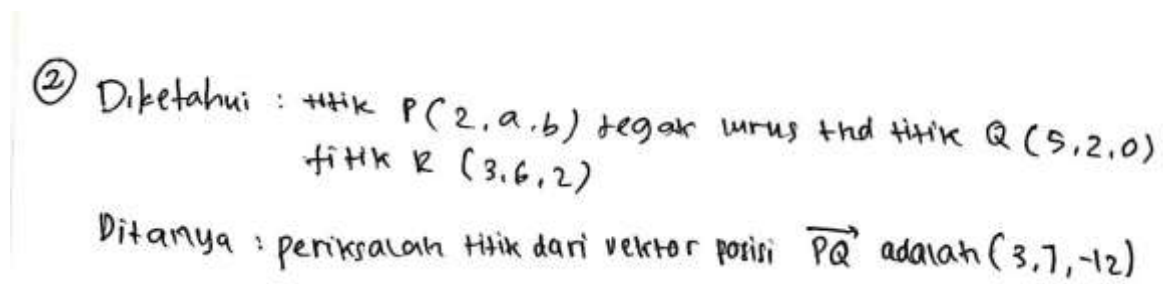 ② Diketahui : titik P(2,a,b) tegak lurus thd titik Q (5,2,0)
titik R (3,6,2)
Ditanya : periksalah titik dari vektor posisi PQ adalah (3,7,-12)